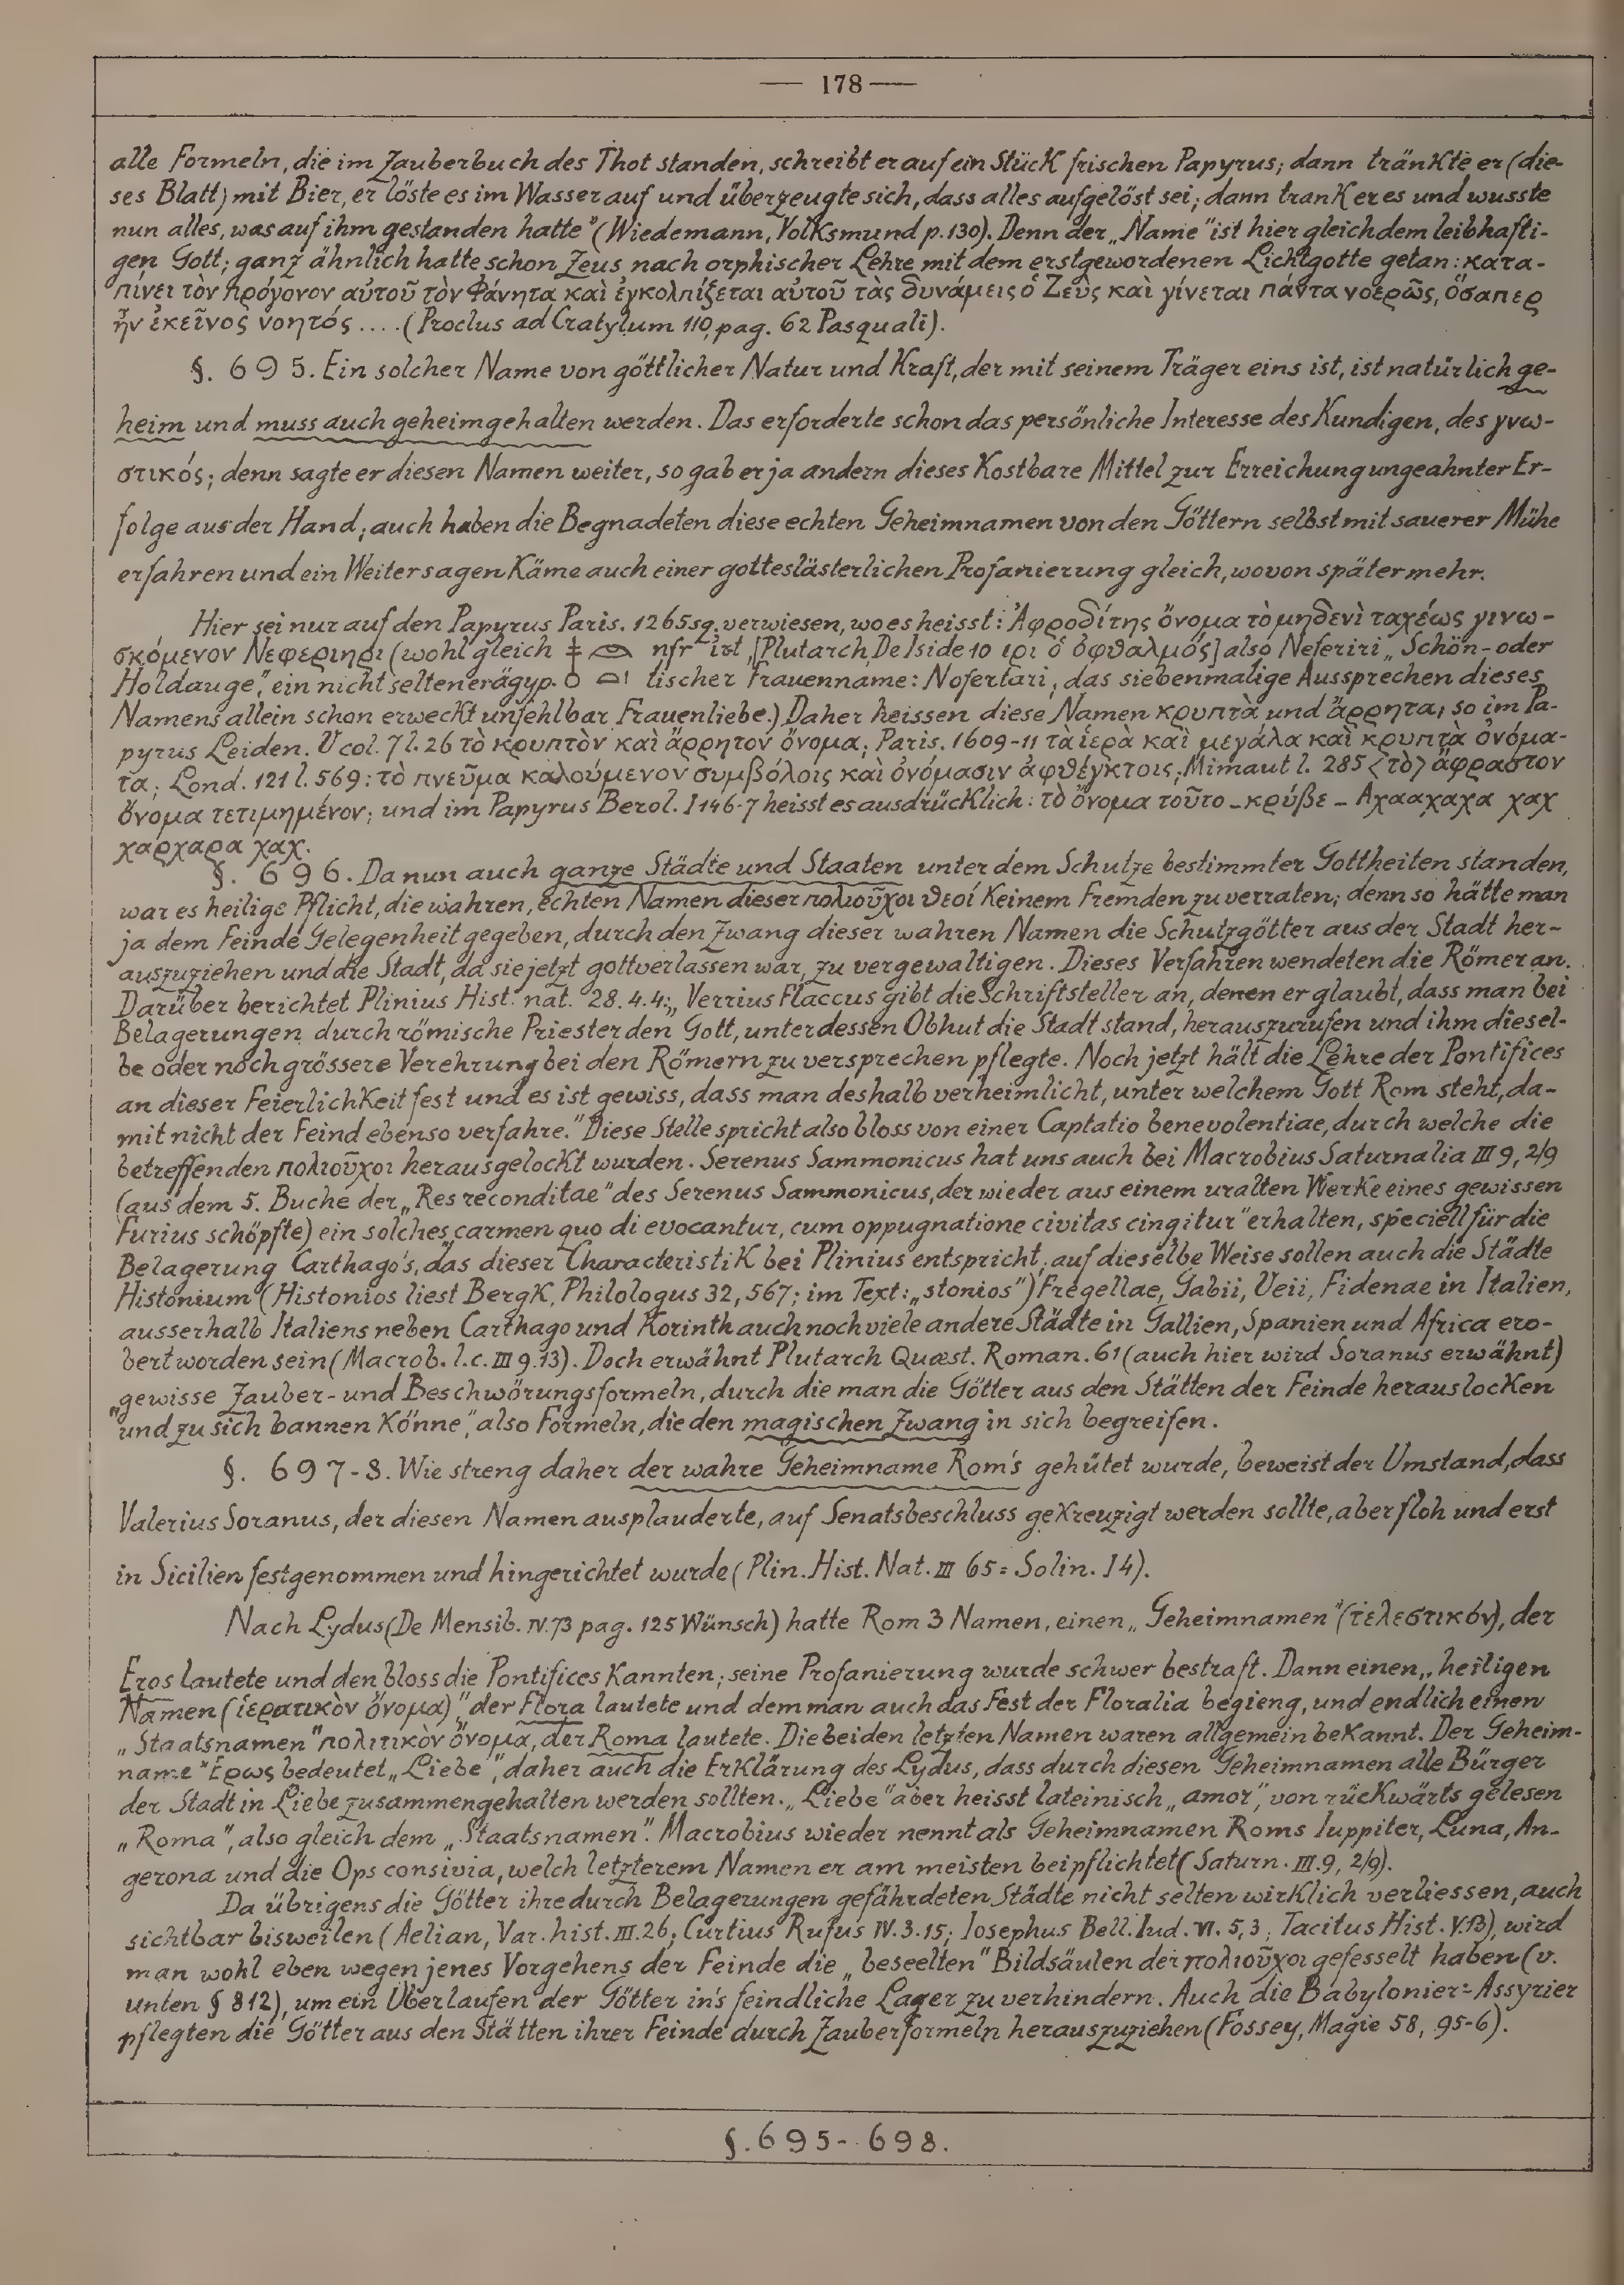 — 178 —
alle Formeln, die im Zauberbuch des Thot standen, schreibt er auf ein Stück frischen Papyrus; dann tränkte er (die-
ses Blatt) mit Bier, er löste es im Wasser auf und überzeugte sich, dass alles aufgelöst sei; dann trank er es und wusste
nun alles, was auf ihm gestanden hatte" (Wiedemann, Volksmund p. 130). Denn der „Name" ist hier gleich dem leibhafti-
gen Gott; ganz ähnlich hatte schon Zeus nach orphischer Lehre mit dem erstgewordenen Lichtgotte getan: κατα-
πίνει τὸν πρόγονον αὐτοῦ τὸν Φάνητα καὶ ἐγκολπίζεται αὐτοῦ τὰς δυνάμεις ὁ Ζεὺς καὶ γίνεται πάντα νοερῶς, ὅσαπερ
ἦν ἐκεῖνος νοητός .... (Proclus ad Cratylum 110, pag. 62 Pasquali).
§. 695. Ein solcher Name von göttlicher Natur und Kraft, der mit seinem Träger eins ist, ist natürlich ge-
heim und muss auch geheimgehalten werden. Das erforderte schon das persönliche Interesse des Kundigen, des γνω-
στικός; denn sagte er diesen Namen weiter, so gab er ja andern dieses Kostbare Mittel zur Erreichung ungeahnter Er-
folge aus der Hand; auch haben die Begnadeten diese echten Geheimnamen von den Göttern selbst mit sauerer Mühe
erfahren und ein Weitersagen Käme auch einer gotteslästerlichen Profanierung gleich, wovon später mehr.
Hier sei nur auf den Papyrus Paris. 1265 sq. verwiesen, wo es heisst: Ἀφροδίτης ὄνομα τὸ μηδενὶ ταχέως γινω-
σκόμενον Νεφεριηρι (wohl gleich nfr irt [Plutarch, De Iside 10 ιρι ὁ ὀφθαλμός] also Neferiri „Schön- oder
Holdauge", ein nicht seltener ägyp- tischer Frauenname: Nofertari; das siebenmalige Aussprechen dieses
Namens allein schon erweckt unfehlbar Frauenliebe.) Daher heissen diese Namen κρυπτὰ und ἄρρητα; so im Pa-
pyrus Leiden. V col. 7 l. 26 τὸ κρυπτὸν καὶ ἄρρητον ὄνομα; Paris. 1609-11 τὰ ἱερὰ καὶ μεγάλα καὶ κρυπτὰ ὀνόμα-
τα; Lond. 121 l. 569: τὸ πνεῦμα καλούμενον συμβόλοις καὶ ὀνόμασιν ἀφθέγκτοις; Mimaut l. 285 <τὸ> ἄφραστον
ὄνομα τετιμημένον; und im Papyrus Berol. I 146-7 heisst es ausdrücklich: τὸ ὄνομα τοῦτο – κρύβε – Αχααχαχα χαχ
χαρχαρα χαχ.
§. 696. Da nun auch ganze Städte und Staaten unter dem Schutze bestimmter Gottheiten standen,
war es heilige Pflicht, die wahren, echten Namen dieser πολιοῦχοι θεοί Keinem Fremden zu verraten; denn so hätte man
ja dem Feinde Gelegenheit gegeben, durch den Zwang dieser wahren Namen die Schutzgötter aus der Stadt her-
auszuziehen und die Stadt, da sie jetzt gottverlassen war, zu vergewaltigen. Dieses Verfahren wendeten die Römer an.
Darüber berichtet Plinius Hist. nat. 28. 4. 4: „Verrius Flaccus gibt die Schriftsteller an, denen er glaubt, dass man bei
Belagerungen durch römische Priester den Gott, unter dessen Obhut die Stadt stand, herauszurufen und ihm diesel-
be oder noch grössere Verehrung bei den Römern zu versprechen pflegte. Noch jetzt hält die Lehre der Pontifices
an dieser Feierlichkeit fest und es ist gewiss, dass man deshalb verheimlicht, unter welchem Gott Rom steht, da-
mit nicht der Feind ebenso verfahre." Diese Stelle spricht also bloss von einer Captatio benevolentiae, durch welche die
betreffenden πολιοῦχοι herausgelockt wurden. Serenus Sammonicus hat uns auch bei Macrobius Saturnalia III 9, 2/9
(aus dem 5. Buche der „Res reconditae" des Serenus Sammonicus, der wieder aus einem uralten Werke eines gewissen
Furius schöpfte) ein solches „carmen quo di evocantur, cum oppugnatione civitas cingitur" erhalten, speciell für die
Belagerung Carthago's, das dieser Characteristik bei Plinius entspricht; auf dieselbe Weise sollen auch die Städte
Histonium (Histonios liest Bergk, Philologus 32, 567; im Text: „stonios") Fregellae, Gabii, Veii, Fidenae in Italien,
ausserhalb Italiens neben Carthago und Korinth auch noch viele andere Städte in Gallien, Spanien und Africa ero-
bert worden sein (Macrob. l. c. III 9. 13). Doch erwähnt Plutarch Quæst. Roman. 61 (auch hier wird Soranus erwähnt)
„gewisse Zauber- und Beschwörungsformeln, durch die man die Götter aus den Stätten der Feinde herauslocken
und zu sich bannen Könne", also Formeln, die den magischen Zwang in sich begreifen.
§. 697-8. Wie streng daher der wahre Geheimname Rom's gehütet wurde, beweist der Umstand, dass
Valerius Soranus, der diesen Namen ausplauderte, auf Senatsbeschluss gekreuzigt werden sollte, aber floh und erst
in Sicilien festgenommen und hingerichtet wurde (Plin. Hist. Nat. III 65 = Solin. I 4).
Nach Lydus (De Mensib. IV. 73 pag. 125 Wünsch) hatte Rom 3 Namen, einen „Geheimnamen" (τελεστικόν), der
Eros lautete und den bloss die Pontifices Kannten; seine Profanierung wurde schwer bestraft. Dann einen „heiligen
Namen (ἱερατικὸν ὄνομα)", der Flora lautete und dem man auch das Fest der Floralia begieng, und endlich einen
„Staatsnamen" πολιτικὸν ὄνομα, der Roma lautete. Die beiden letzten Namen waren allgemein bekannt. Der Geheim-
name Ἔρως bedeutet „Liebe", daher auch die Erklärung des Lydus, dass durch diesen Geheimnamen alle Bürger
der Stadt in Liebe zusammengehalten werden sollten. „Liebe" aber heisst lateinisch „amor", von rückwärts gelesen
„Roma", also gleich dem „Staatsnamen". Macrobius wieder nennt als Geheimnamen Roms Iuppiter, Luna, An-
gerona und die Ops consivia, welch letzterem Namen er am meisten beipflichtet (Saturn. III. 9, 2/9).
Da übrigens die Götter ihre durch Belagerungen gefährdeten Städte nicht selten wirklich verliessen, auch
sichtbar bisweilen (Aelian, Var. hist. III. 26; Curtius Rufus IV. 3. 15; Iosephus Bell. Iud. VI. 5, 3; Tacitus Hist. V. 13), wird
man wohl eben wegen jenes Vorgehens der Feinde die „beseelten" Bildsäulen der πολιοῦχοι gefesselt haben (v.
unten § 812), um ein Überlaufen der Götter in's feindliche Lager zu verhindern. Auch die Babylonier-Assyrier
pflegten die Götter aus den Stätten ihrer Feinde durch Zauberformeln herauszuziehen (Fossey, Magie 58, 95-6).
§. 695- 698.